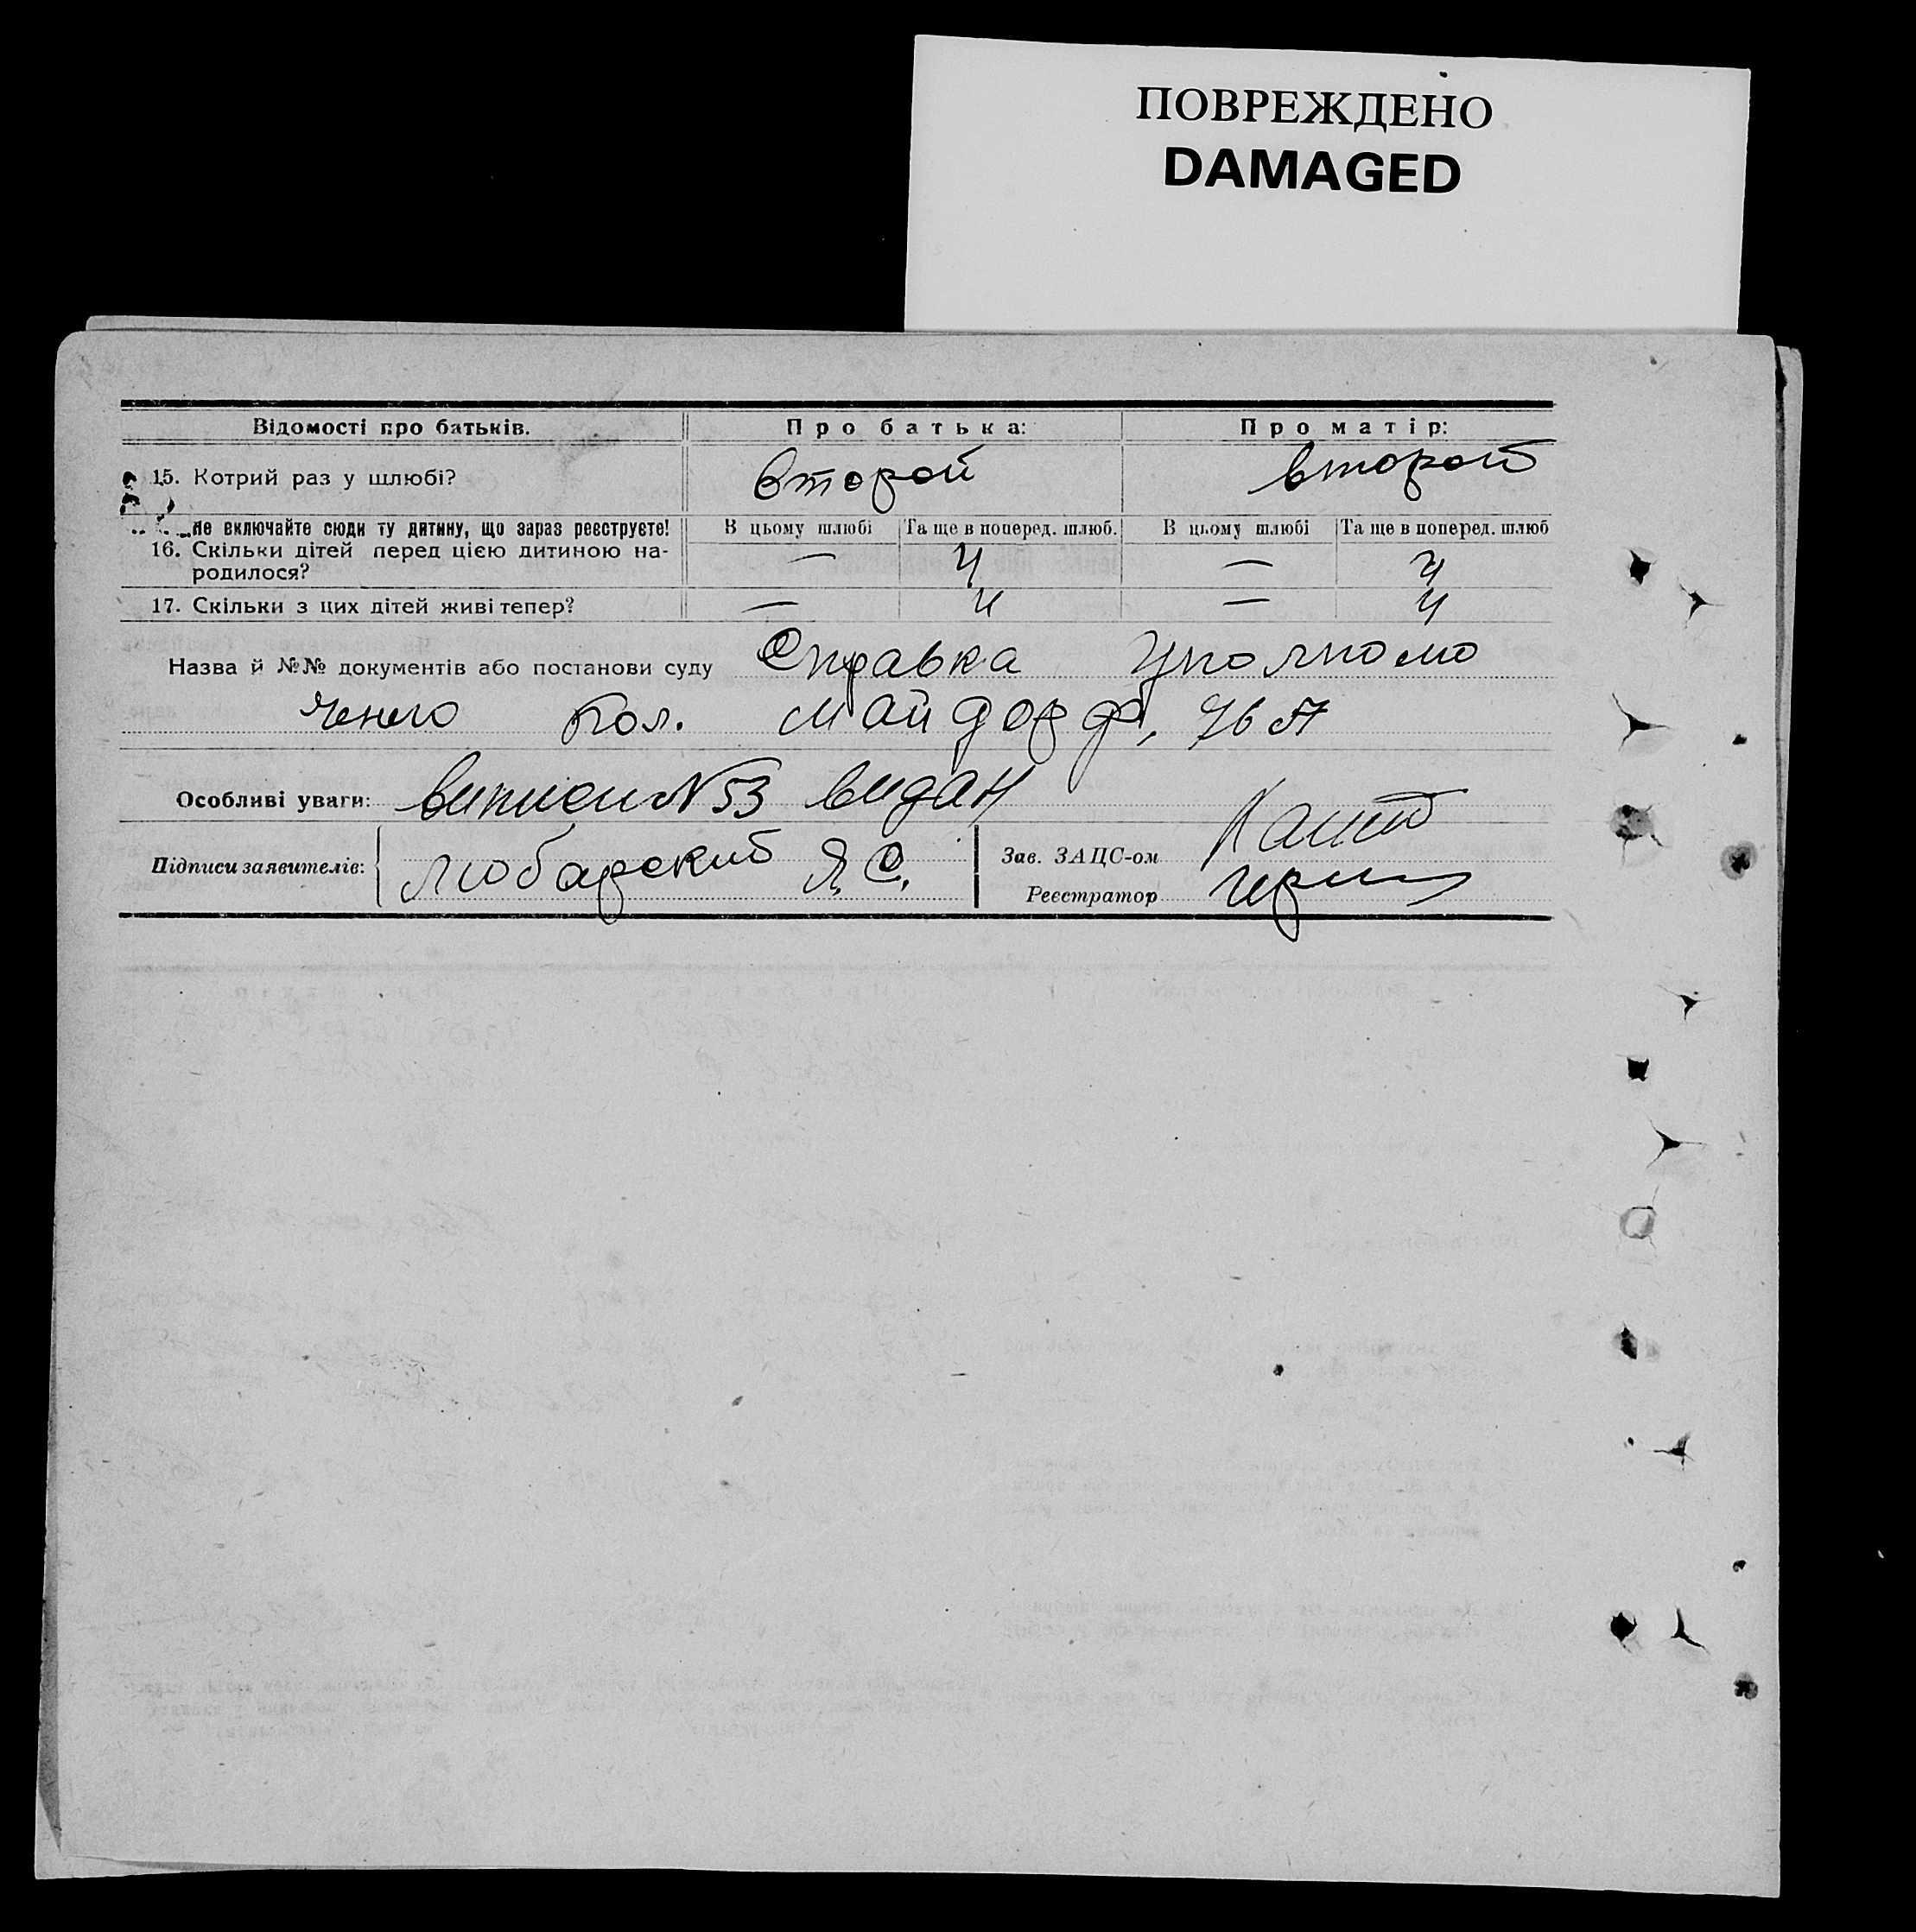 ПОВРЕЖДЕНО
DAMAGED
Відомості про батьків. Про батька: Про матір:
15. Котрий раз у шлюбі? второй второй
Не включайте сюди ту дитину, що зараз реєструєте! В цьому шлюбі Та ще в поперед. шлюб. В цьому шлюбі Та ще в поперед. шлюб
16. Скільки дітей перед цією дитиною на- — 4 — 4
родилося?
17. Скільки з цих дітей живі тепер? — 4 — 4
Назва й №№ документів або постановi суду Справка Уполномо
ченого кол. Майдорф,
Особливі уваги: виписи N 53 видан
Підписи заявителів: Любарский Я. С. Зав. ЗАЦС-ом
Реєстратор